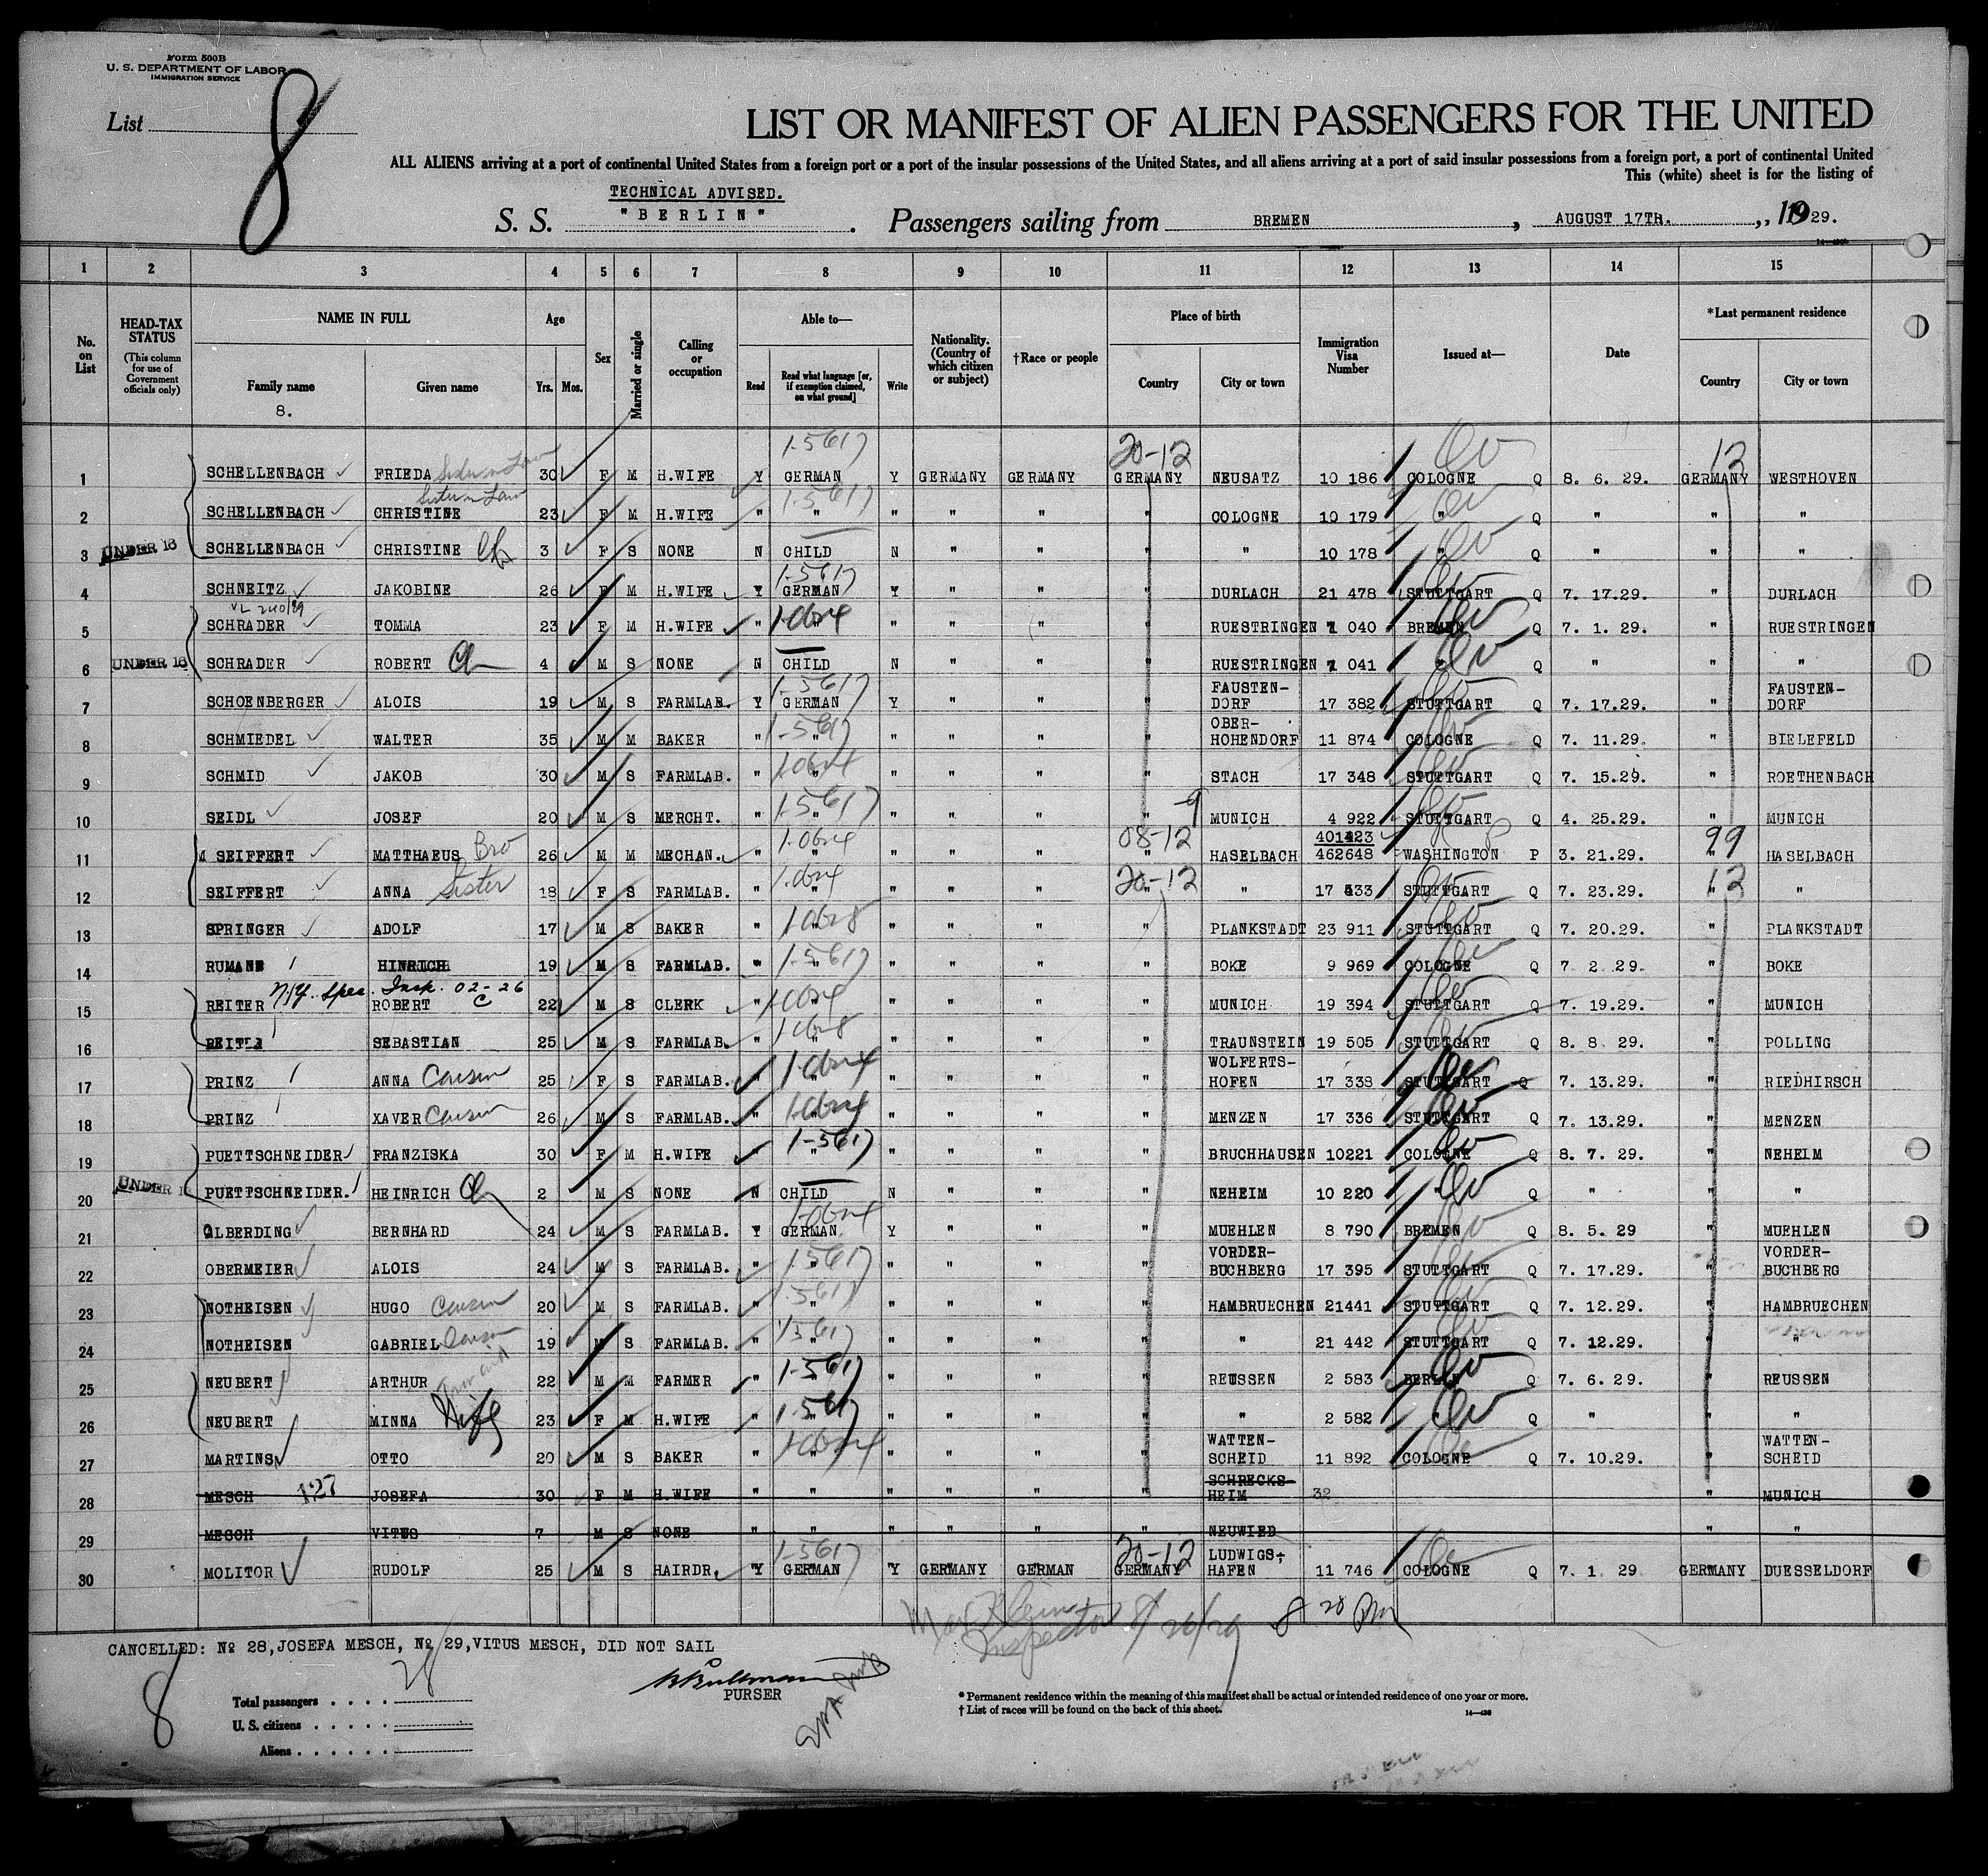 Form 500B
U. S. DEPARTMENT OF LABOR
IMMIGRATION SERVICE
List 8
LIST OR MANIFEST OF ALIEN PASSENGERS FOR THE UNITED
ALL ALIENS arriving at a port of continental United States from a foreign port or a port of the insular possessions of the United States, and all aliens arriving at a port of said insular possessions from a foreign port, a port of continental United
This (white) sheet is for the listing of
TECHNICAL ADVISED.
S. S. "BERLIN". Passengers sailing from BREMEN, AUGUST 17TH., 1929.
1 2 3 4 5 6 7 8 9 10 11 12 13 14 15
No. on List
HEAD-TAX STATUS (This column for use of Government officials only)
NAME IN FULL Family name Given name
8.
Age Yrs. Mos.
Sex
Married or single
Calling or occupation
Able to— Read Read what language [or, if exemption claimed, on what ground] Write
Nationality. (Country of which citizen or subject)
†Race or people
Place of birth Country City or town
Immigration Visa Number
Issued at—
Date
*Last permanent residence Country City or town
1 SCHELLENBACH FRIEDA Sister in Law 30 F M H.WIFE Y GERMAN 1-5617 Y GERMANY GERMANY 20-12 GERMANY NEUSATZ 10 186 COLOGNE Q 8. 6. 29. 12 GERMANY WESTHOVEN
2 SCHELLENBACH CHRISTINE Sister in Law 23 F M H.WIFE " " 1-5617 " " " " COLOGNE 10 179 " Q " " "
3 UNDER 16 SCHELLENBACH CHRISTINE Ch 3 F S NONE N CHILD N " " " " 10 178 " Q " " "
4 SCHNEITZ JAKOBINE 26 F M H.WIFE Y GERMAN 1-5617 Y " " " DURLACH 21 478 STUTTGART Q 7. 17.29. " DURLACH
VL 240/29
5 SCHRADER TOMMA 23 F M H.WIFE " " " " " " RUESTRINGEN 1 040 BREMEN Q 7. 1. 29. " RUESTRINGEN
6 UNDER 16 SCHRADER ROBERT Ch 4 M S NONE N CHILD N " " " RUESTRINGEN 1 041 " Q " " "
7 SCHOENBERGER ALOIS 19 M S FARMLAB. Y GERMAN 1-5617 Y " " " FAUSTEN-DORF 17 382 STUTTGART Q 7. 17.29. " FAUSTEN-DORF
8 SCHMIEDEL WALTER 35 M M BAKER " " 1-5617 " " " " OBER-HOHENDORF 11 874 COLOGNE Q 7. 11.29. " BIELEFELD
9 SCHMID JAKOB 30 M S FARMLAB. " " " " " " STACH 17 348 STUTTGART Q 7. 15.29. " ROETHENBACH
10 SEIDL JOSEF 20 M S MERCHT. " " 1-5617 " " " " MUNICH 4 922 STUTTGART Q 4. 25.29. " MUNICH
11 SEIFFERT MATTHAEUS Bro 26 M M MECHAN. " " " " " 08-12 " HASELBACH 462648 WASHINGTON P 3. 21.29. 99 " HASELBACH
12 SEIFFERT ANNA Sister 18 F S FARMLAB. " " " " " 20-12 " " 17 433 STUTTGART Q 7. 23.29. 12 " "
13 SPRINGER ADOLF 17 M S BAKER " " " " " " PLANKSTADT 23 911 STUTTGART Q 7. 20.29. " PLANKSTADT
14 RUMANN HINRICH 19 M S FARMLAB. " " 1-5617 " " " " BOKE 9 969 COLOGNE Q 7 2 29. " BOKE
N/Y. Spec. Insp. 02-26
15 REITER ROBERT C 22 M S CLERK " " " " " " MUNICH 19 394 STUTTGART Q 7. 19.29. " MUNICH
16 REITER SEBASTIAN 25 M S FARMLAB. " " " " " " TRAUNSTEIN 19 505 STUTTGART Q 8. 8 29. " POLLING
17 PRINZ ANNA Cousin 25 F S FARMLAB. " " " " " " WOLFERTS-HOFEN 17 338 STUTTGART Q 7. 13.29. " RIEDHIRSCH
18 PRINZ XAVER Cousin 26 M S FARMLAB. " " " " " " MENZEN 17 336 STUTTGART Q 7. 13.29. " MENZEN
19 PUETTSCHNEIDER FRANZISKA 30 F M H.WIFE " " 1-5617 " " " " BRUCHHAUSEN 10221 COLOGNE Q 8. 7. 29. " NEHEIM
20 UNDER 1 PUETTSCHNEIDER. HEINRICH Ch 2 M S NONE N CHILD N " " " NEHEIM 10 220 " Q " " "
21 OLBERDING BERNHARD 24 M S FARMLAB. Y GERMAN Y " " " MUEHLEN 8 790 BREMEN Q 8. 5. 29 " MUEHLEN
22 OBERMEIER ALOIS 24 M S FARMLAB. " " 1-5617 " " " " VORDER-BUCHBERG 17 395 STUTTGART Q 7. 17.29. " VORDER-BUCHBERG
23 NOTHEISEN HUGO Cousin 20 M S FARMLAB. " " 1-5617 " " " " HAMBRUECHEN 21441 STUTTGART Q 7. 12.29. " HAMBRUECHEN
24 NOTHEISEN GABRIEL Cousin 19 M S FARMLAB. " " 1-5617 " " " " " 21 442 STUTTGART Q 7. 12.29. " "
25 NEUBERT ARTHUR 22 M M FARMER " " 1-5617 " " " " REUSSEN 2 583 BERLIN Q 7. 6. 29. " REUSSEN
26 NEUBERT MINNA Wife 23 F M H.WIFE " " 1-5617 " " " " " 2 582 " Q " " "
27 MARTINS OTTO 20 M S BAKER " " " " " " WATTEN-SCHEID 11 892 COLOGNE Q 7. 10.29. " WATTEN-SCHEID
28 MESCH 127 JOSEFA 30 F M H.WIFE " " " " " " SCHRECKS-HEIM 32 " MUNICH
29 MESCH VITUS 7 M S NONE " " " " " " NEUWIED " "
30 MOLITOR RUDOLF 25 M S HAIRDR. Y GERMAN 1-5617 Y GERMANY GERMAN 20-12 GERMANY LUDWIGS-HAFEN 11 746 COLOGNE Q 7. 1 29 GERMANY DUESSELDORF
Max Klein Inspector 8/26/29 8 20 Pm
CANCELLED: No 28,JOSEFA MESCH, No 29,VITUS MESCH, DID NOT SAIL
8
PURSER
Total passengers . . . . 28
U. S. citizens . . . . .
Aliens . . . . . .
* Permanent residence within the meaning of this manifest shall be actual or intended residence of one year or more.
† List of races will be found on the back of this sheet.